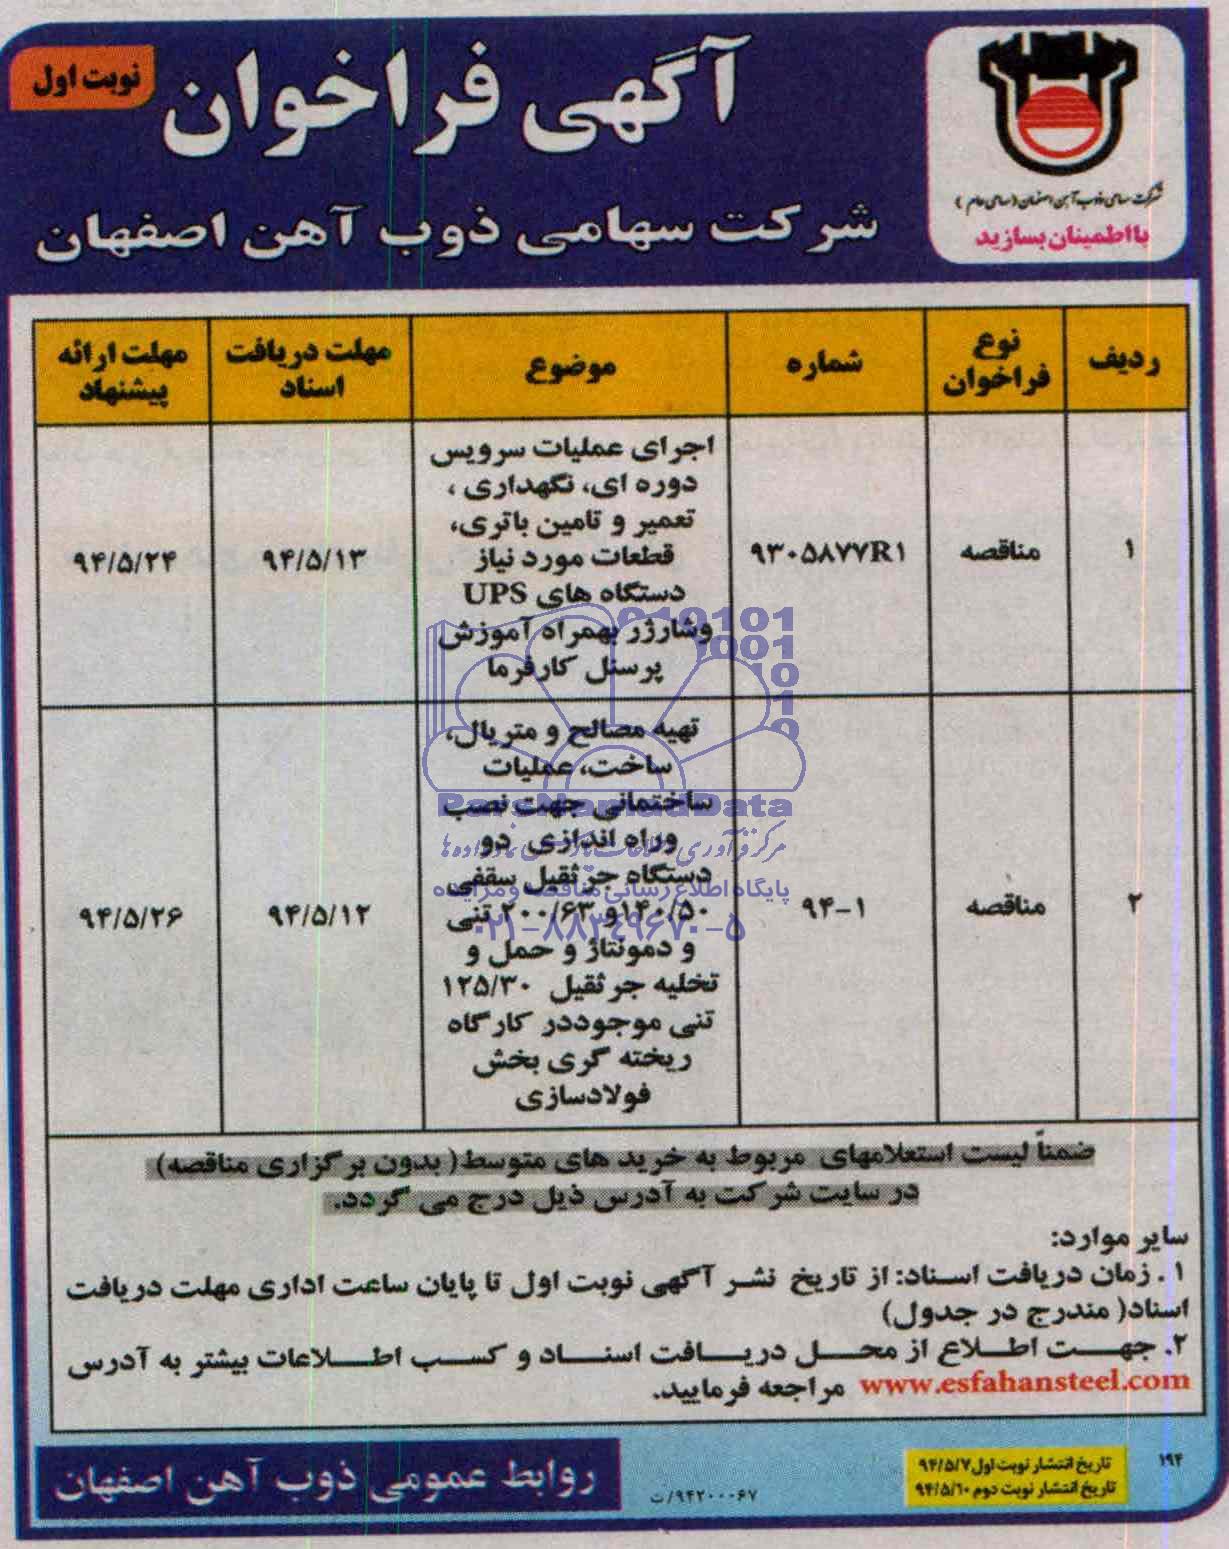 نوبت اول
آگهی فراخوان
شرکت سهامی ذوب آهن اصفهان
شرکت سهامی ذوب آهن اصفهان (سهامی عام)
با اطمینان بسازید
ردیف
نوع فراخوان
شماره
موضوع
مهلت دریافت اسناد
مهلت ارائه پیشنهاد
۱
مناقصه
۹۳۰۵۸۷۷R۱
اجرای عملیات سرویس
دوره ای، نگهداری ،
تعمیر و تامین باتری،
قطعات مورد نیاز
دستگاه های UPS
وشارژر بهمراه آموزش
پرسنل کارفرما
۹۴/۵/۱۳
۹۴/۵/۲۴
۲
مناقصه
۹۴-۱
تهیه مصالح و متریال،
ساخت، عملیات
ساختمانی جهت نصب
وراه اندازی دو
دستگاه جرثقیل سقفی
۱۴۰/۵۰و ۲۰۰/۶۳ تنی
و دمونتاژ و حمل و
تخلیه جرثقیل ۱۲۵/۳۰
تنی موجوددر کارگاه
ریخته گری بخش
فولادسازی
۹۴/۵/۱۲
۹۴/۵/۲۶
ParsNamadData
مرکز فرآوری اطلاعات پارس نماد داده ها
پایگاه اطلاع رسانی مناقصه و مزایده
۰۲۱-۸۸۳۴۹۶۷۰-۵
ضمناً لیست استعلامهای مربوط به خرید های متوسط( بدون برگزاری مناقصه)
در سایت شرکت به آدرس ذیل درج می گردد.
سایر موارد:
۱. زمان دریافت اسناد: از تاریخ نشر آگهی نوبت اول تا پایان ساعت اداری مهلت دریافت
اسناد( مندرج در جدول)
۲. جهت اطلاع از محل دریافت اسناد و کسب اطلاعات بیشتر به آدرس
www.esfahansteel.com مراجعه فرمایید.
۱۹۴
تاریخ انتشار نوبت اول ۹۴/۵/۷
تاریخ انتشار نوبت دوم ۹۴/۵/۱۰
۹۴۲۰۰۰۶۷/ت
روابط عمومی ذوب آهن اصفهان